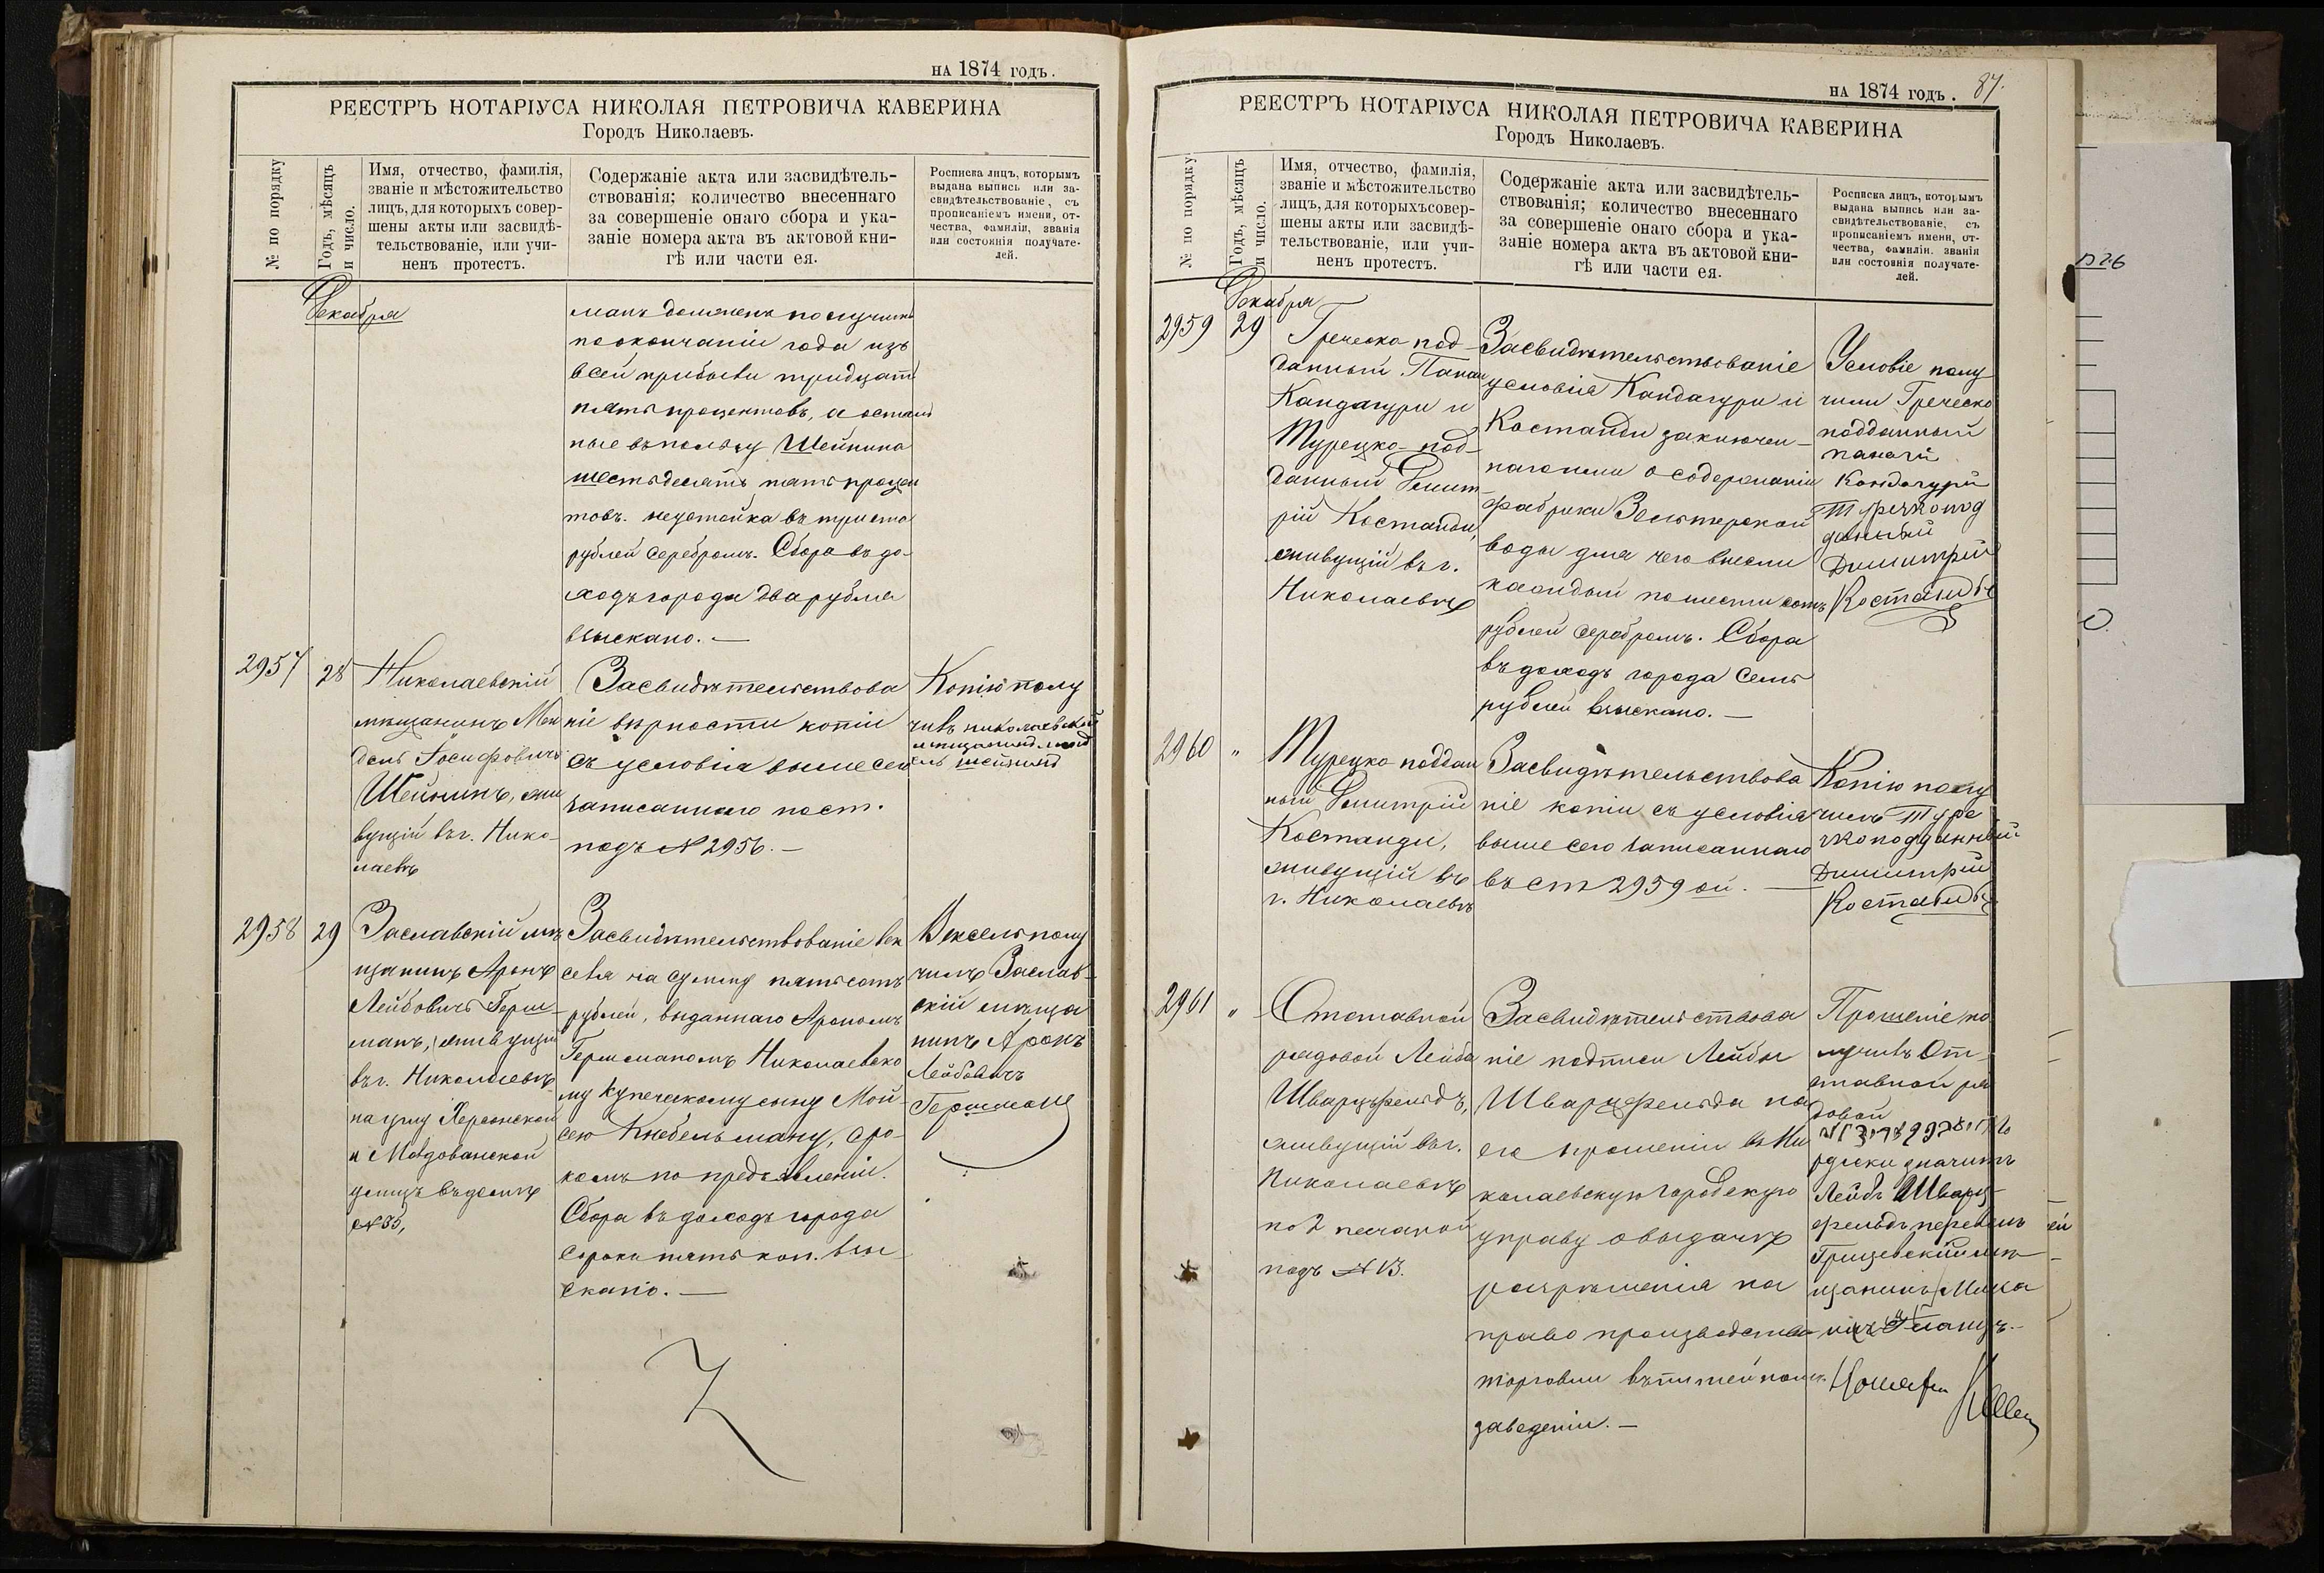 на 1874 годъ.
РЕЕСТРЪ НОТАРІУСА НИКОЛАЯ ПЕТРОВИЧА КАВЕРИНА
Городъ Николаевъ.
№ по порядку
Годъ, мѣсяцъ
и число.
Имя, отчество, фамилія,
званіе и мѣстожительство
лицъ, для которыхъ совер-
шены акты или засвидѣ-
тельствованіе, или учи-
ненъ протестъ.
Содержаніе акта или засвидѣтель-
ствованія; количество внесеннаго
за совершеніе онаго сбора и ука-
заніе номера акта въ актовой кни-
гѣ или части ея.
Росписка лицъ, которымъ
выдана выпись или за-
свидѣтельствованіе, съ
прописаніемъ имени, от-
чества, фамиліи, званія
или состоянія получате-
лей.
Декабря
манъ долженъ получить
по окончаніи года изъ
всей прибыли тридцать
пять процентовъ, а осталь
ные въ пользу Шейнина
шестьдесять пять процен
товъ. неустойка въ триста
рублей серебромъ. Сбора въ до-
ходъ города два рубля
взыскано. —
2957
28
Николаевскій
мѣщанинъ Мен
дель Іосифовичъ
Шейнинъ, жи
вущій въ г. Нико-
лаевѣ
Засвидѣтельствова
ніе вѣрности копіи
съ условія выше сего
записаннаго пост.
подъ № 2956. —
Копію полу
чивъ николаевской
мещанинъ
шейнинъ
2958
29
Заславскій мѣ
щанинъ Аронъ
Лейбовичъ Герш-
манъ, живущій
въ г. Николаевѣ
на углу Херсонской
и Молдованской
улицъ въ домѣ
№ 35,
Засвидѣтельствованіе век
селя на сумму пятьсотъ
рублей, выданнаго Арономъ
Гершманомъ Николаевско
му купеческому сыну Мой-
сею Кнебельману, сро-
комъ по предъявленіи.
Сбора въ доходъ города
сорокъ пять коп. взы
скано. —
Вексель полу
чилъ Заслав-
скій мѣща
нинъ Аронъ
Лейбовичъ
Гершманъ
на 1874 годъ.
87.
РЕЕСТРЪ НОТАРІУСА НИКОЛАЯ ПЕТРОВИЧА КАВЕРИНА
Городъ Николаевъ.
№ по порядку
Годъ, мѣсяцъ
и число.
Имя, отчество, фамилія,
званіе и мѣстожительство
лицъ, для которыхъ совер-
шены акты или засвидѣ-
тельствованіе, или учи-
ненъ протестъ.
Содержаніе акта или засвидѣтель-
ствованія; количество внесеннаго
за совершеніе онаго сбора и ука-
заніе номера акта въ актовой кни-
гѣ или части ея.
Росписка лицъ, которымъ
выдана выпись или за-
свидѣтельствованіе, съ
прописаніемъ имени, от-
чества, фамиліи, званія
или состоянія получате-
лей.
Декабря
2959
29
Греческо под-
данный Панаи
Кандагури и
Турецко-под-
данный Димит-
рій Костанди,
живущій въ г.
Николаевѣ
Засвидѣтельствованіе
условія Кандагури и
Костанди заключен-
наго ими о содержаніи
фабрики Зельтерской
воды для чего внесли
каждый по шести сотъ
рублей серебромъ. Сбора
въ доходъ города семь
рублей взыскано. —
Условіе полу
чили Греческо
подданный
панаги
Кондагури
Турецкопод
даный
Димитрий
Костанди
2960
"
Турецко поддан
ный Димитрій
Костанди,
живущій въ
г. Николаевѣ
Засвидѣтельствова
ніе копіи съ условія
выше сего записаннаго
въ ст 2959 ой. —
Копію полу
чилъ Туре
цкоподданный
Димитрий
Костанди
2961
"
Отставной
рядовой Лейба
Шварцфельдъ,
живущій въ г.
Николаевѣ
по 2 песчаной
подъ № 13.
Засвидѣтельствова
ніе подписи Лейбы
Шварцфельда на
его прошеніи въ Ни
колаевскую Городскую
управу о выдачѣ
разрѣшенія на
право производства
торговли въ питейномъ
заведеніи. —
Прошеніе по
лучивъ От-
ставной ря
довой
руски значитъ
Лейбъ Шварц-
фельдъ перевелъ
мѣ
щанинъ